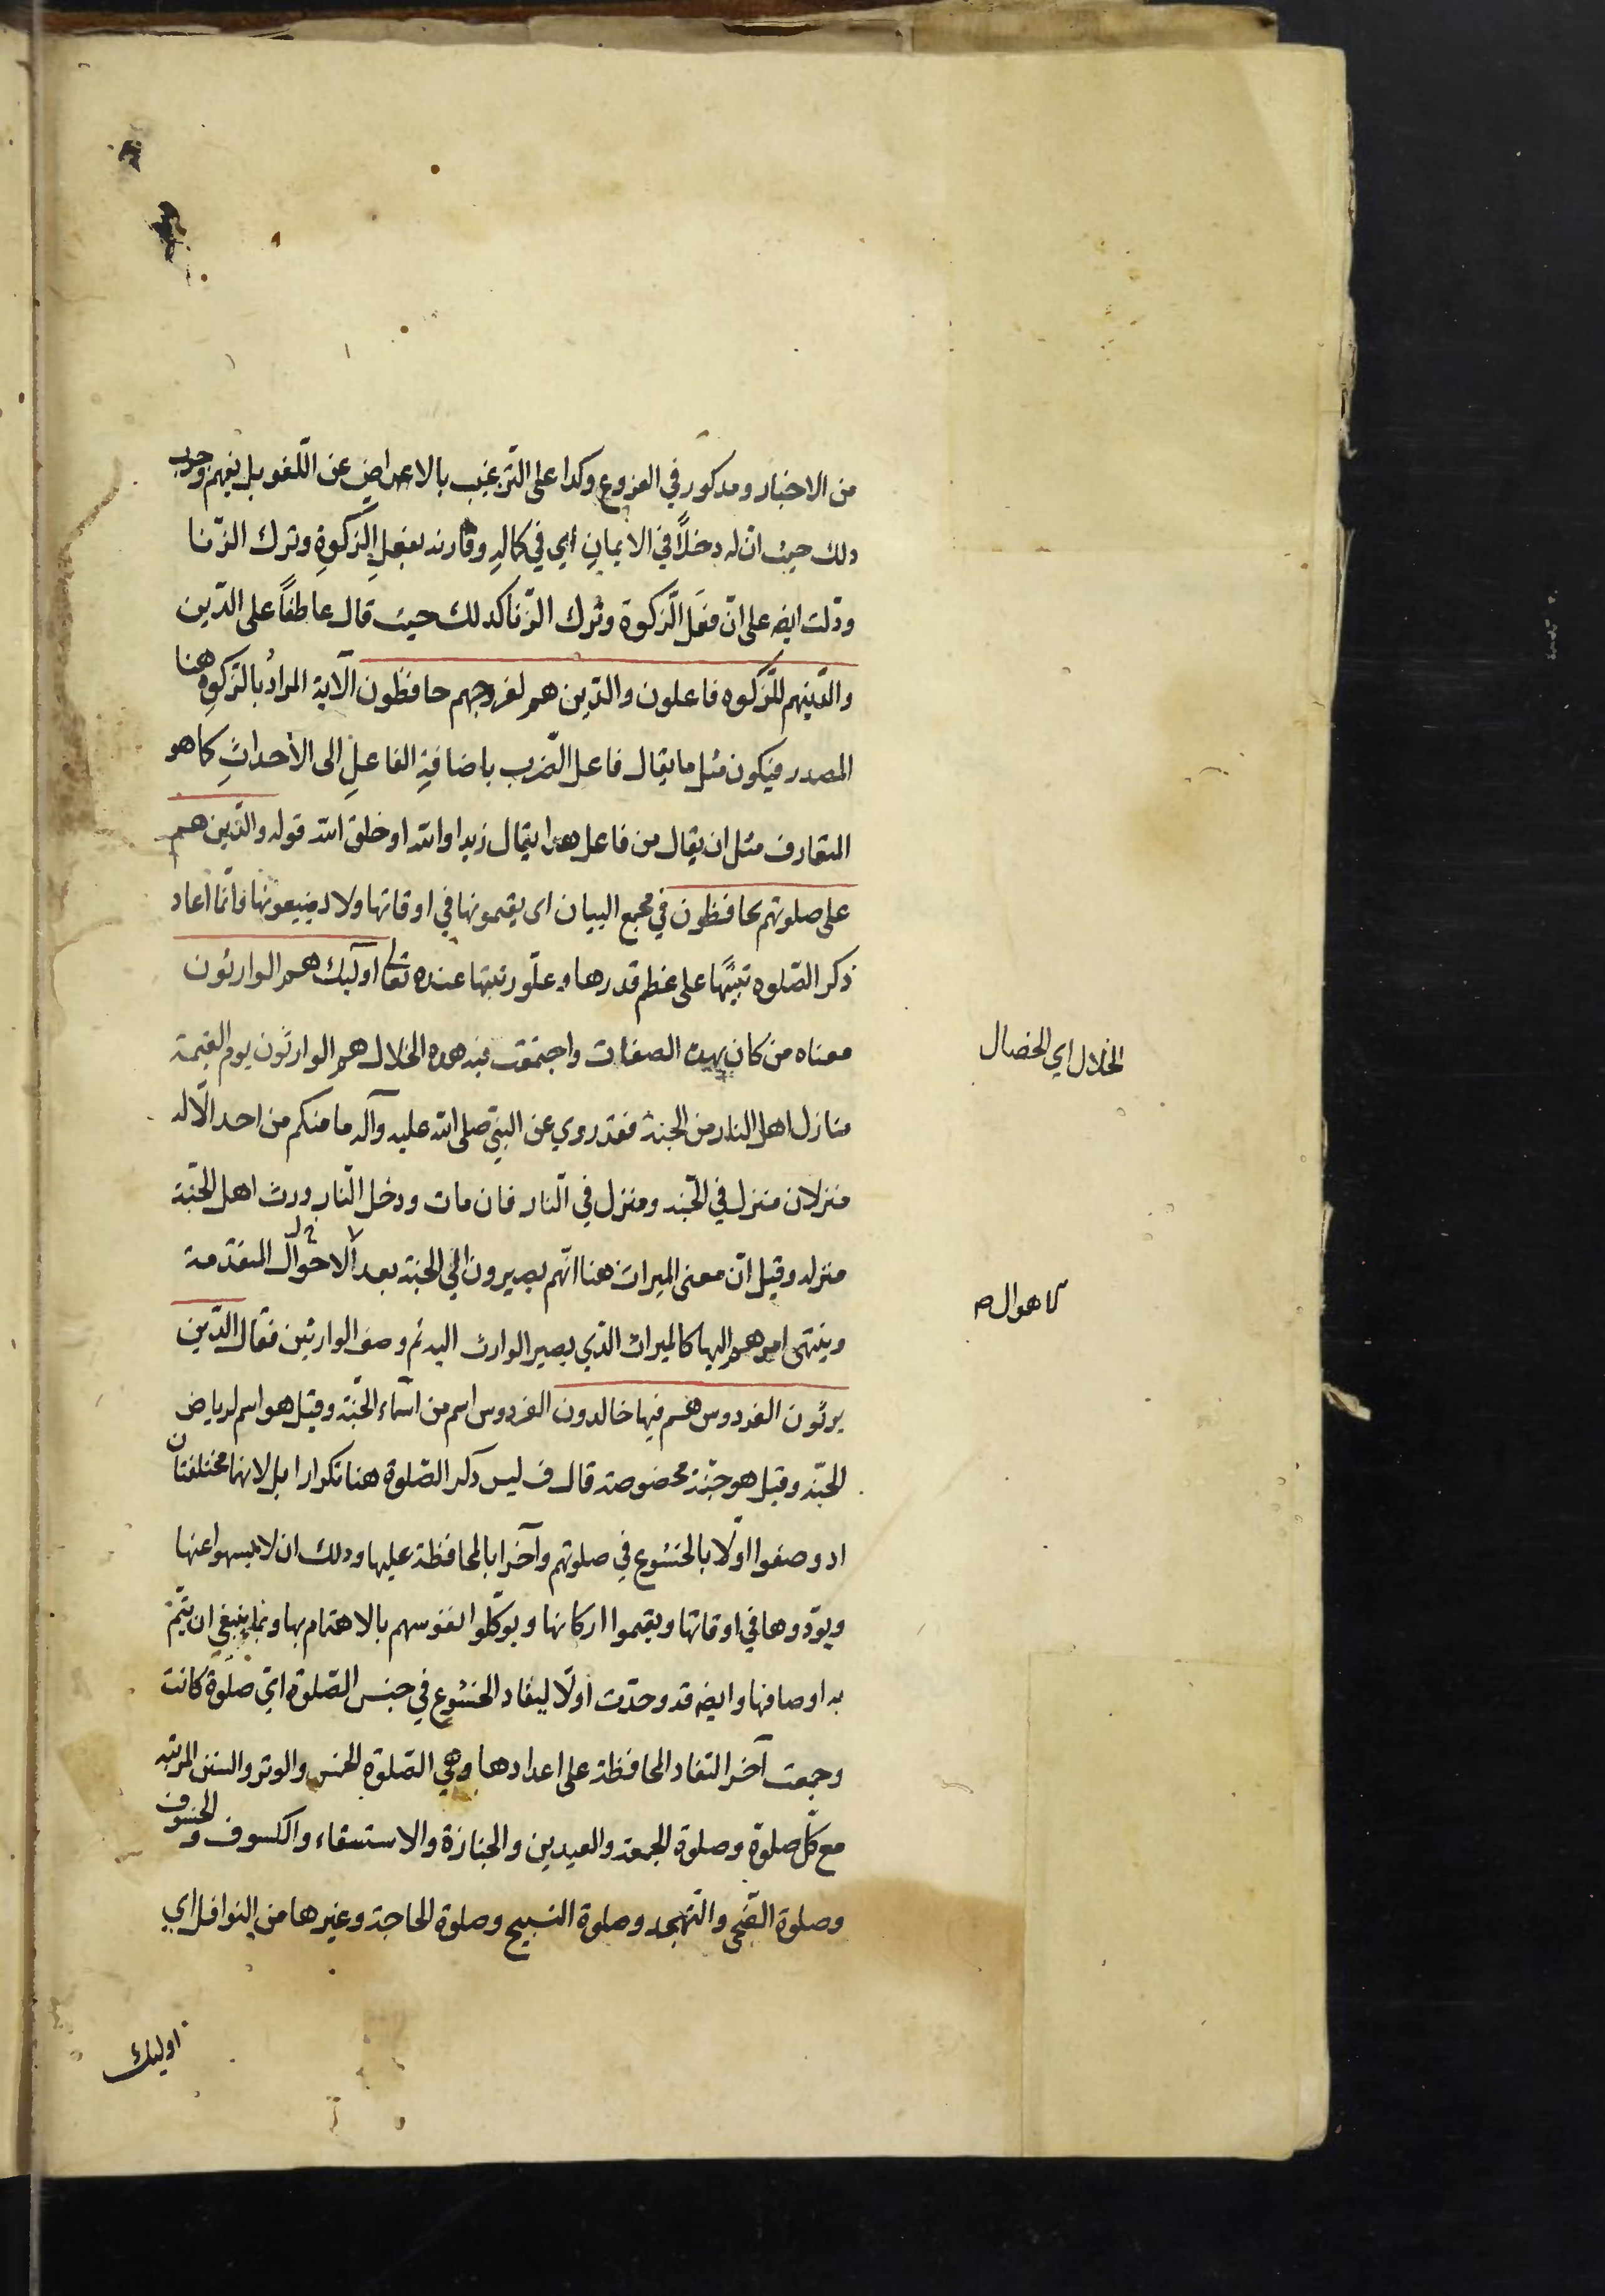 من الاخبار ومذكور في الفروع وكذا على الترغيب بالاعراض عن اللغو بل يفهم وجوب
ذلك حيث ان له دخلاً في الايمانِ اي في كمالهِ وقارنه بفعلِ الزكوةِ وترك الزنا
ودلت ايضه على انّ فعَل الزكوة وترك الزنا كذلك حيث قال عاطفاً على الذين
والذينهم للزكوه فاعلون والذين هم لفروجهم حافظون الآية المرادُ بالزكوِة هنا
المصدر فيكون مثل ما يقال فاعل الضرب باضافةِ الفاعلِ الى الأحداثِ كما هو
المتعارف مثل ان يقال من فاعل هذا يقال زيد او الله او خلق الله قوله والذين هم
على صلوتهم يحافظون في مجمع البيان اى يقيمونها في اوقاتها ولا يضيعونها وانّما اعاد
ذكر الصّلوه تنبيهًا على عظم قدرها وعلّو رتبتها عنده تعالى اولَيك هم الوارثون
معناه من كان بهذه الصفات واجتمعت فيه هذه الخلال هم الوارثون يوم القيمة
منازل اهل النار من الجنة فقد روي عن النبيّ صلى الله عليه وآله ما منكم من احد الّا له
منزلان منزل في الجّنه ومنزل في النّار فان مات ودخل النّار ورث اهل الجنّة
منزله وقيل انّ معنى الميراث هنا انّهم يصيرون الى الجنة بعد الاحوال المتقدمة
وينتهى امرهم اليها كالميراث الذّي يصير الوارث اليه ثم وصف الوارثين فقال الذّين
يرثون الفردوس هم فيها خالدون الفردوس اسم من اسماء الجّنة وقيل هو اسم لرياض
الجنّه وقيل هو جنّة مخصوصة قال ف ليس ذكر الصّلوة هنا تكرارا بل لانهما مختلفتان
اذ وصفوا اوّلا بالخشوع في صلوتهم وآخرا بالمحافظة عليها وذلك ان لا يسهوا عنها
ويوّدوها في اوقاتها ويقيموا اركانها ويوكّلوا نفوسهم بالاهتمام بها وبما ينبغي ان يتّم
به اوصافها وايضه قد وحدّت اولّا ليفاد الخشوع في جنس الصّلوة ايّ صلوة كانت
وجمعت آخرا لتفاد المحافظة على اعدادها وهي الصّلوة الخمس والوتر والسنن المرتبه
مع كلّ صلوة وصلوة الجمعة والعيدين والجنازة والاستسقاء والكسوف والخسوف
وصلوة الضّحى والتّهجد وصلوة التسبيح وصلوة الحاجة وغيرها من النوافل اي
اوليك
الخلال اي الخصال
الاهوال ص